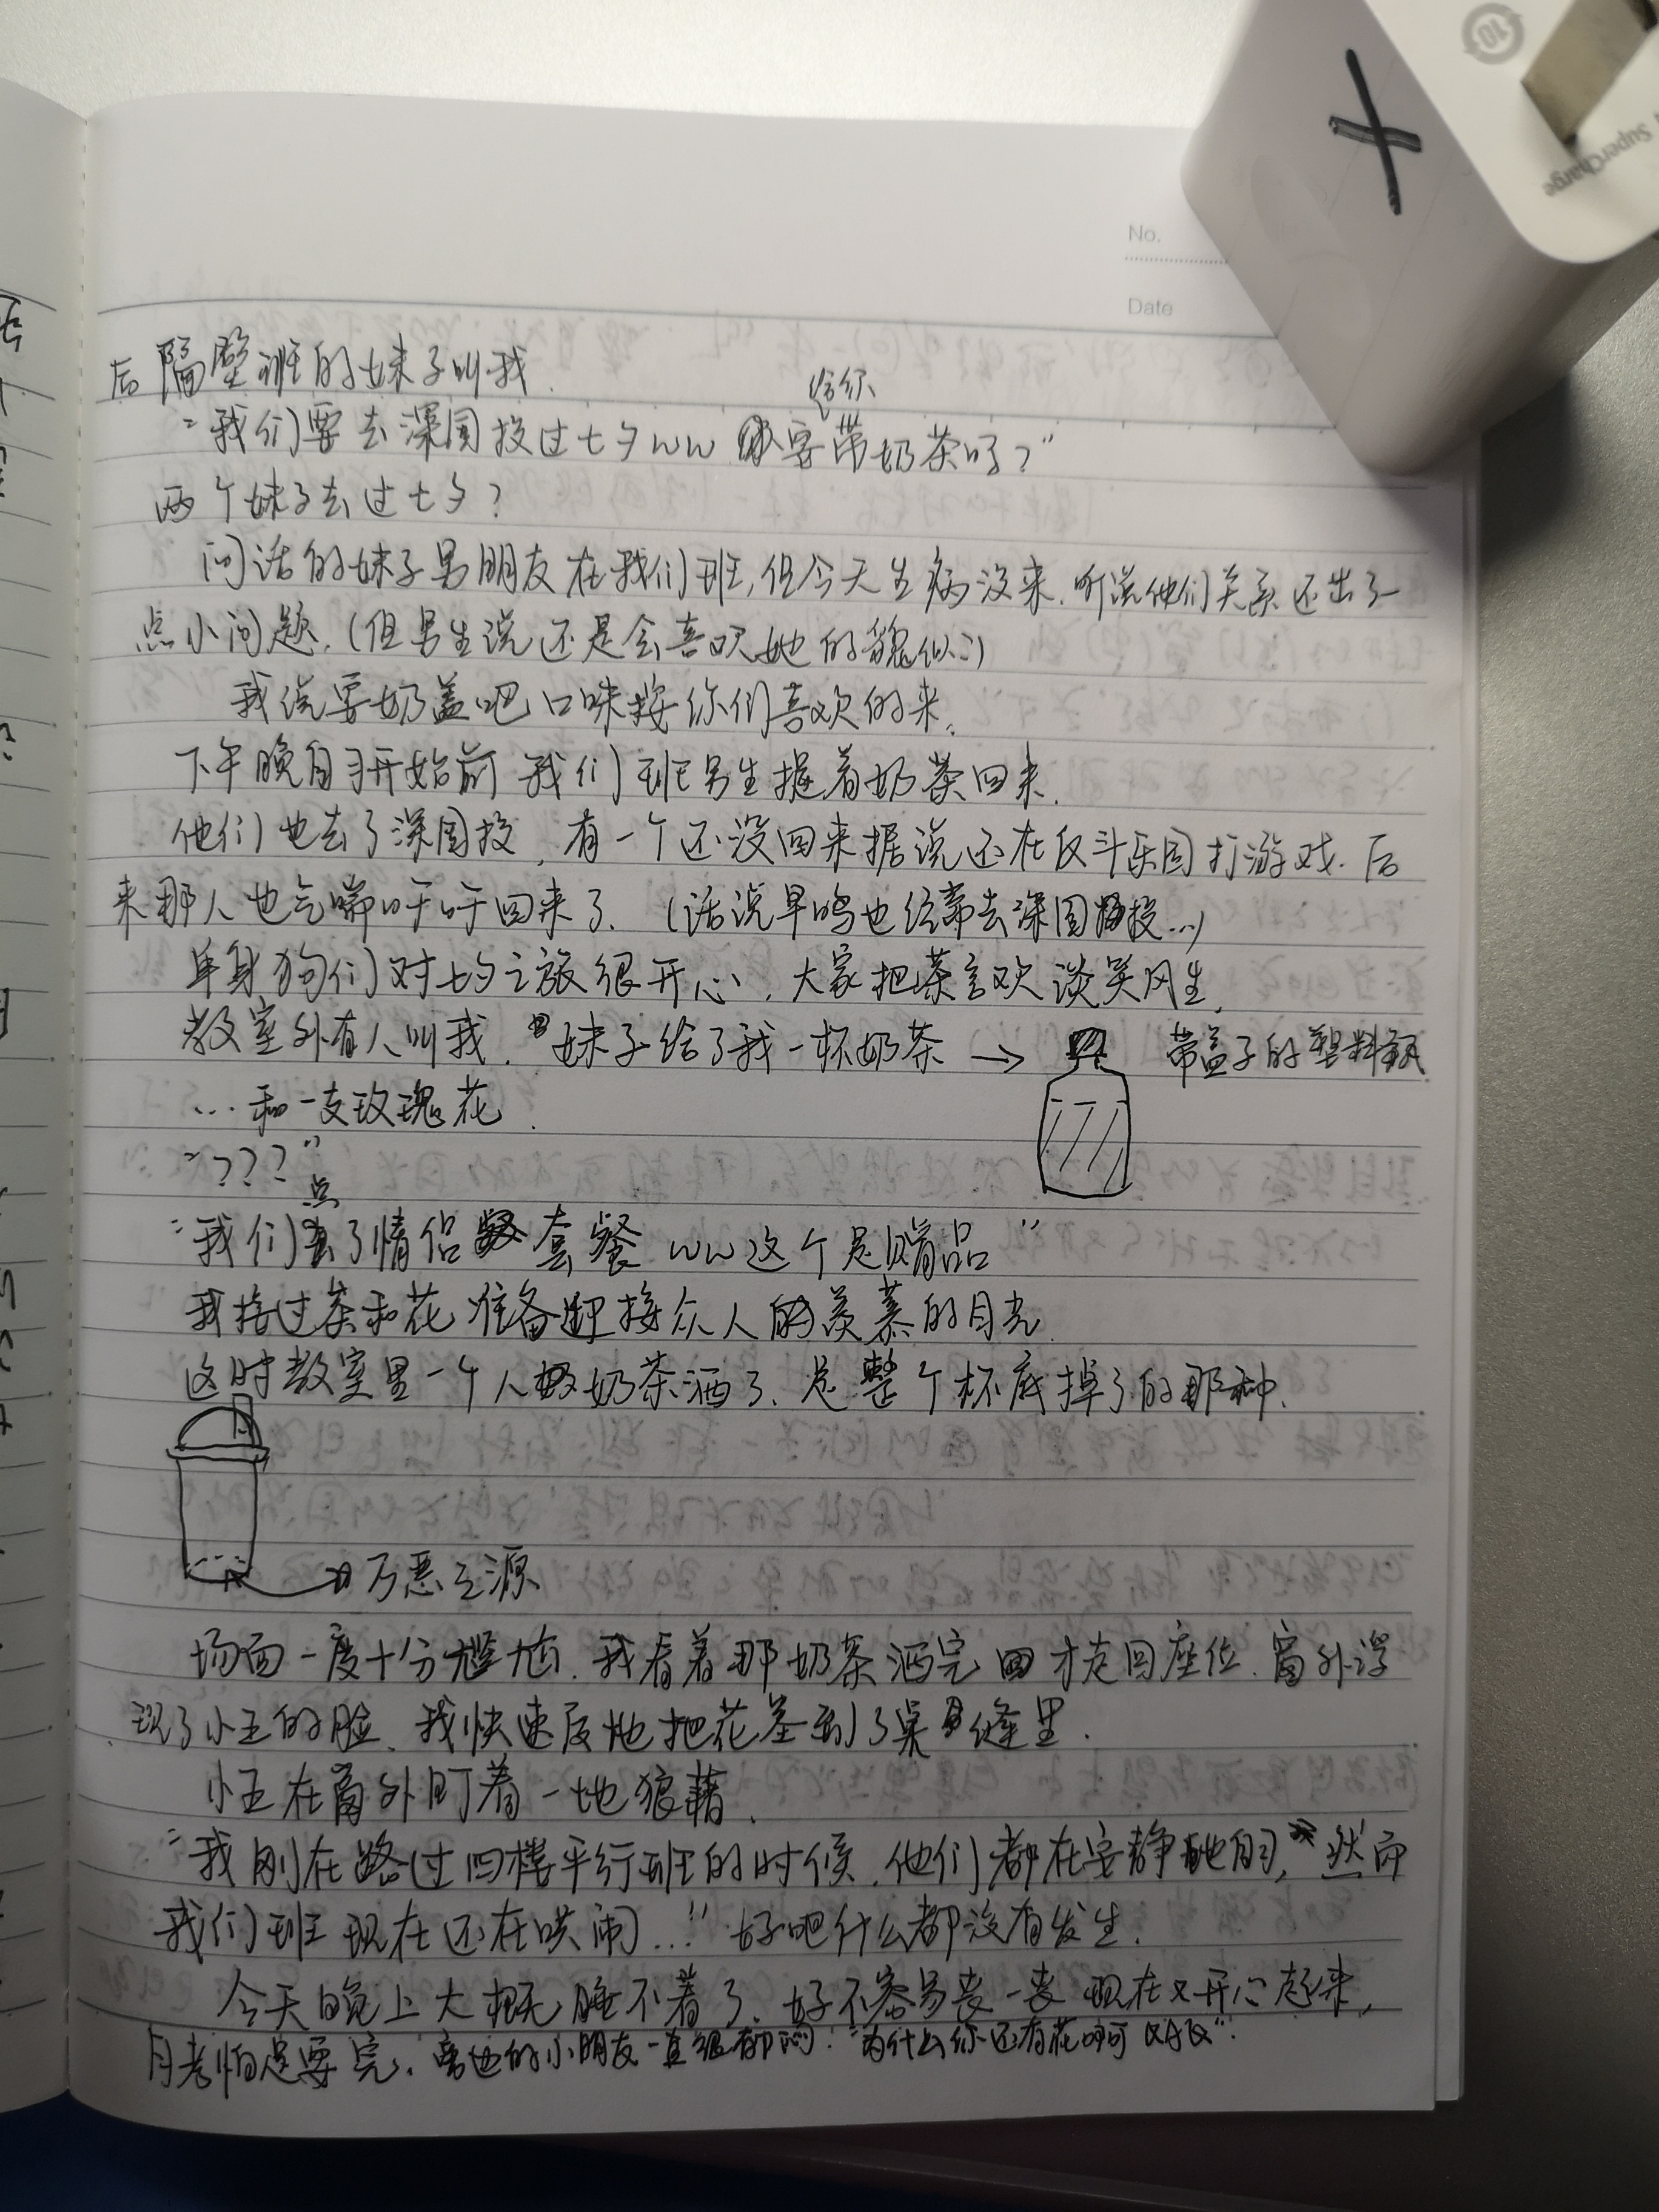 No.
Date
SuperCharge
10
后隔壁班的妹子叫我.
“我们要去深国投过七夕ww 要给你带奶茶吗?”
两个妹子去过七夕?
问话的妹子男朋友在我们班,但今天生病没来.听说他们关系还出了
点小问题.(但男生说还是会喜欢她的貌似:)
我说要奶盖吧 口味按你们喜欢的来.
下午晚自习开始前 我们班男生提着奶茶回来.
他们也去了深国投,有一个还没回来据说还在反斗乐园打游戏.后
来那人也气喘吁吁回来了.(话说早鸣也经常去深国投...)
单身狗们对七夕之旅很开心.大家把茶言欢谈笑风生.
教室外有人叫我.妹子给了我一杯奶茶 → 带盖子的塑料瓶
...和一支玫瑰花.
“???”
“我们点了情侣套餐 ww这个是赠品”
我接过茶和花 准备迎接众人的羡慕的目光.
这时教室里一个人奶茶洒了.是整个杯底掉了的那种.
万恶之源
场面一度十分尴尬.我看着那奶茶洒完才走回座位.窗外浮
现了小王的脸.我快速反地把花塞到了桌缝里.
小王在窗外盯着一地狼藉.
“我刚在路过四楼平行班的时候.他们都在安静地自习,然而
我们班现在还在哄闹...” 好吧什么都没有发生.
今天晚上大概睡不着了.好不容易丧一丧 现在又开心起来,
月老怕是要完.旁边的小朋友一直很郁闷:“为什么你还有花啊 QAQ”.